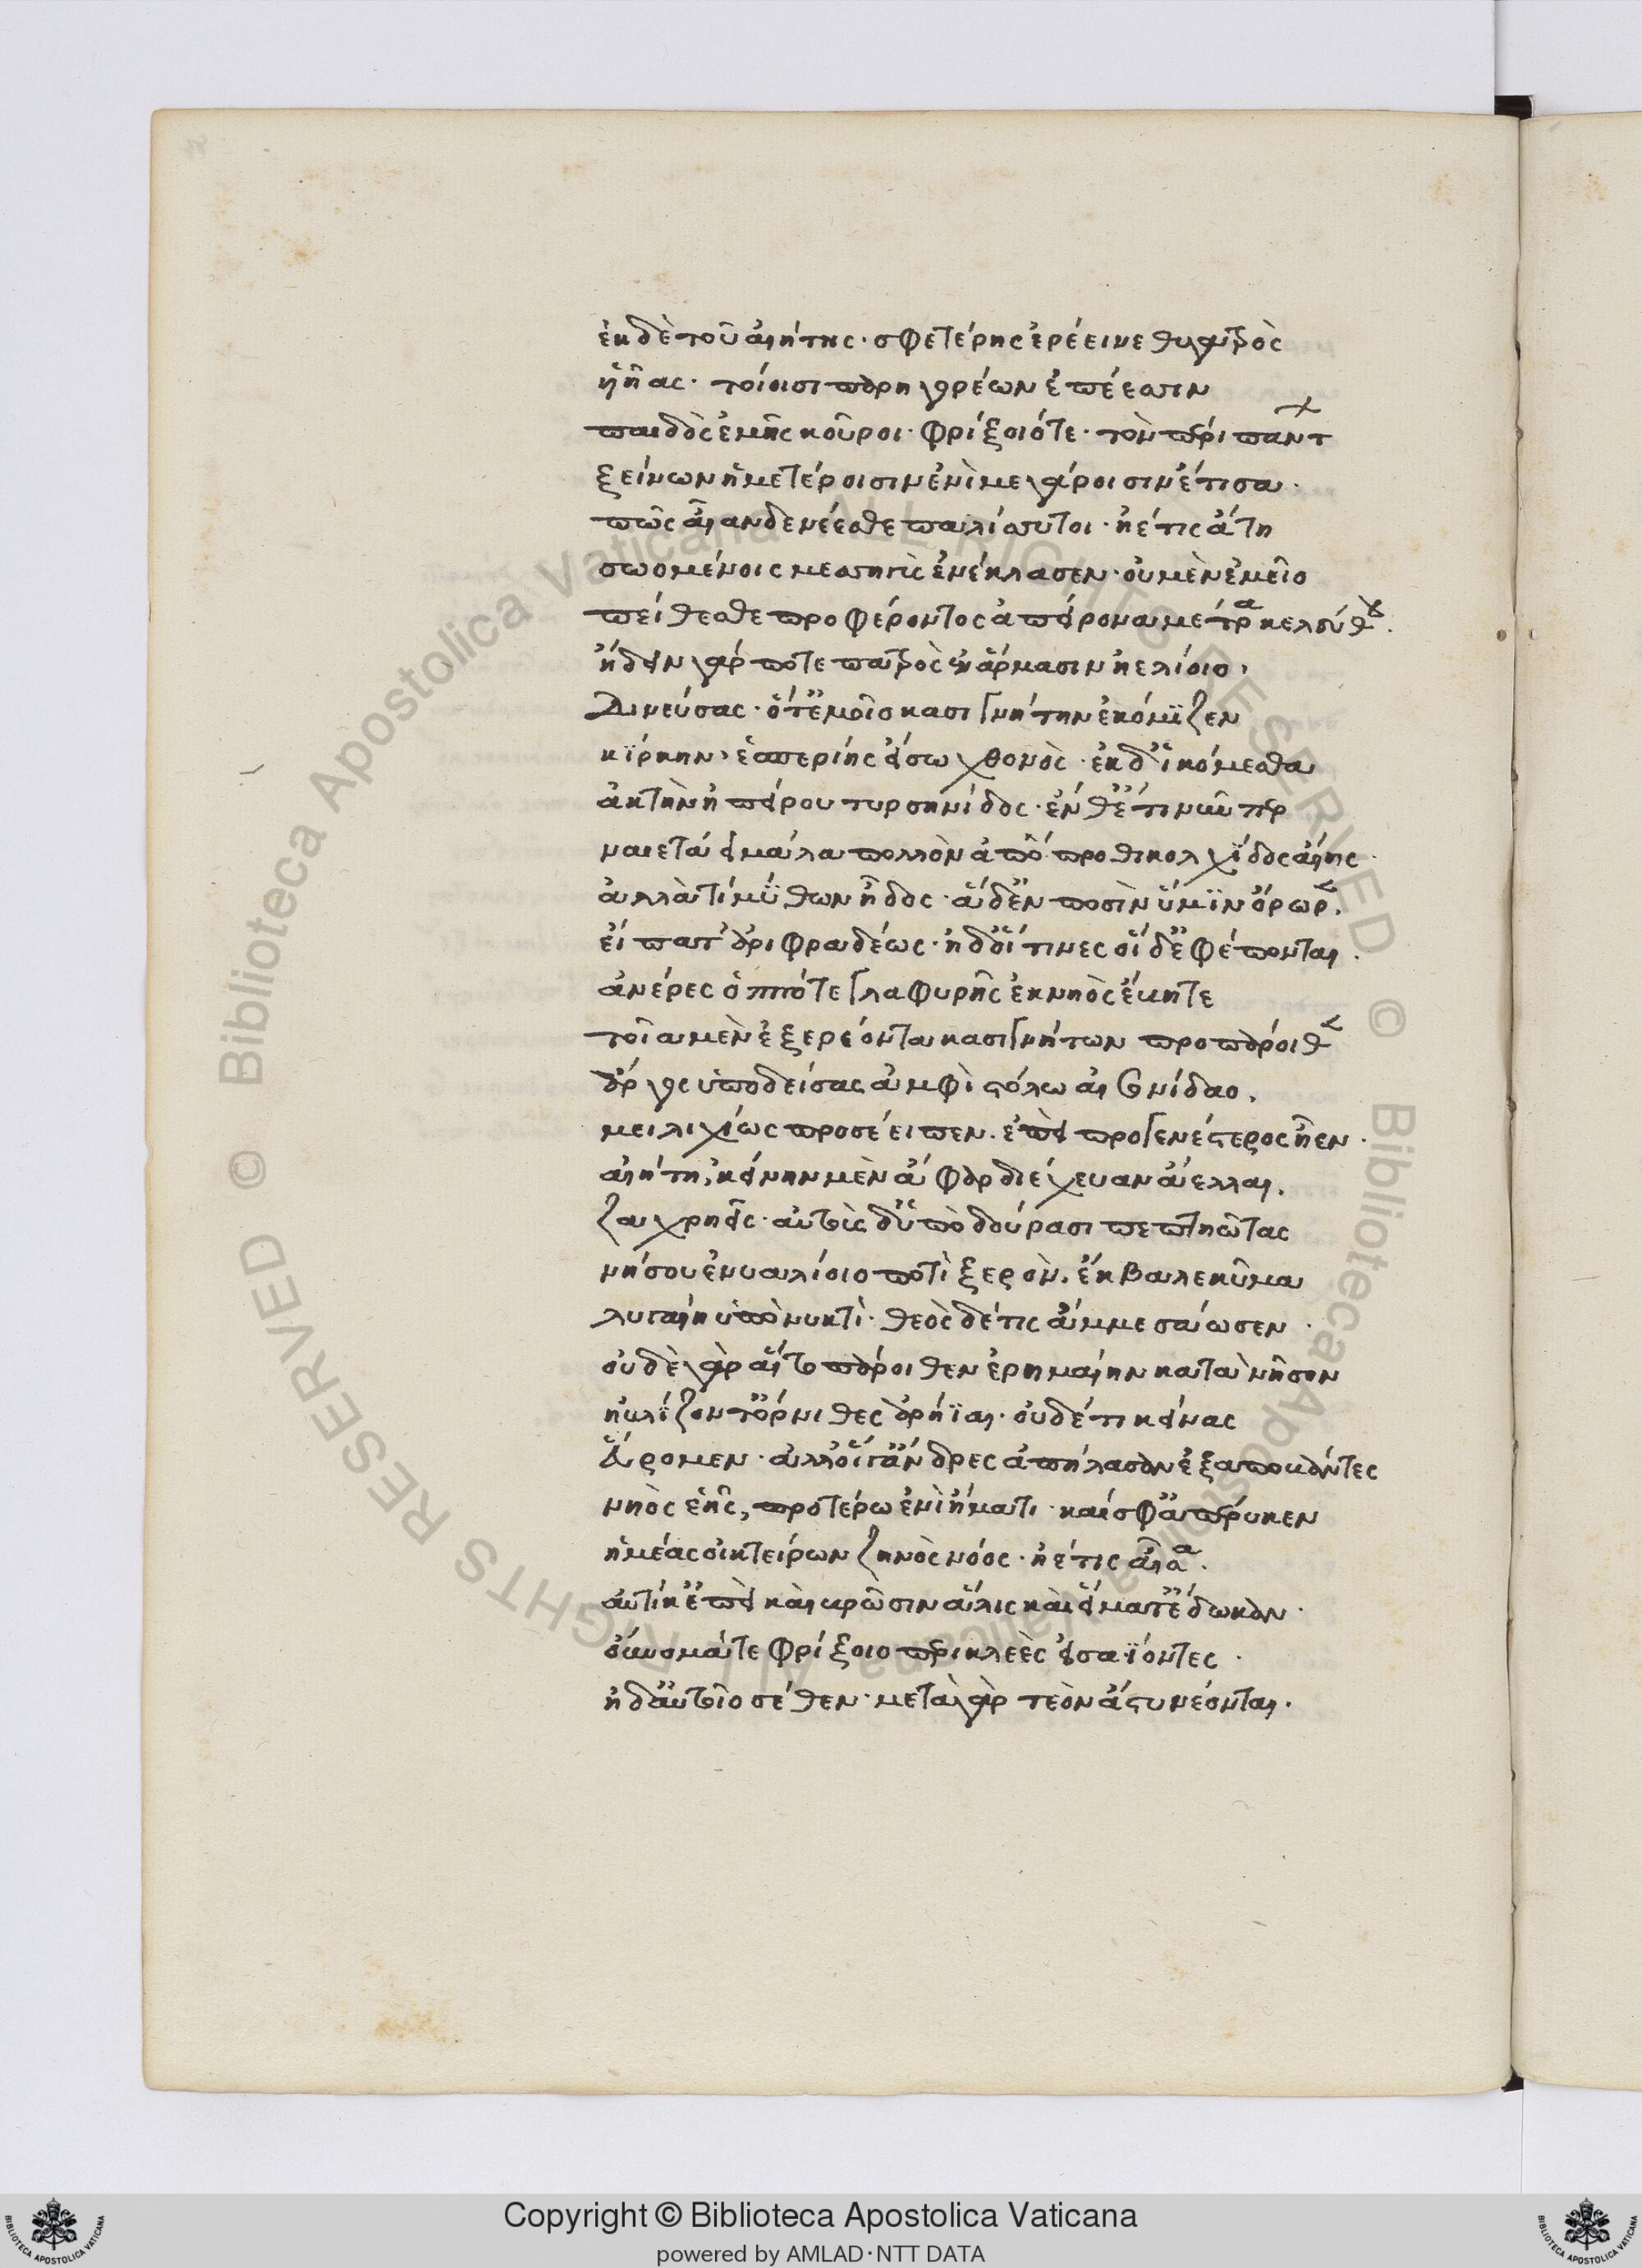 ἐκ δὲ τοῦ αἰήτης· σφετέρης ἐρέεινε θυγατρὸς
ἤϊας· τοίοισι παρηγορέων ἐπέεσσιν
παιδὸς ἐμῆς κοῦροι· φρίξοιότε· τὸν περὶ παντ
ξείνων ἡμετέροισιν ἐνὶ μεγάροισιν ἔτισα·
πῶς αἶαν δε νέεσθε παλίσσυτοι· ἠέ τις ἄτη
σωομένοις μεσσηγὺς ἐνέκλασεν· οὐ μὲν ἐμεῖο
πείθεσθε προφέροντος ἀπείρονα μέτρα κελεύθου.
ἤδειν γάρ ποτε πατρὸς ἐν ἅρμασιν ἠελίοιο,
δινεύσας· ὅτ' ἐμοῖο κασιγνήτην ἐκόμιζεν
κίρκην, ἑσπερίης εἴσω χθονὸς· ἐκ δ' ἱκόμεσθα
ἀκτὴν ἠπείρου τυρσηνίδος· ἔνθ' ἔτι νῦν περ
ναιετάει μάλα πολλὸν ἀπό προθι κολχίδος αἴης·
ἀλλὰ τί μύθων ἦδος· ἃ δ' ἐν ποσὶν ὔμιν ὄρωρεν.
εἴπατ' ἀριφραδέως· ἠδ' οἵτινες οἵδ' ἐφέπονται.
ἀνέρες ὁππότε γλαφυρῆς ἐκ νηὸς ἔβητε
τοῖα μὲν ἐξερέοντα κασιγνήτων προπάροιθεν
ἄργος ὑποδείσας ἀμφὶ στόλω αἰσονίδαο,
μειλιχίως προσέειπεν· ἐπεὶ προγενέστερος ἦεν·
αἰήτη, κείνην μὲν ἄφαρ διέχευαν ἄελλαι.
ζαχρηεῖς· αὐτοὺς δ' ὑπὸ δούρασι πεπτηῶτας
νήσου ἐνυαλίοιο ποτὶ ξερὸν, ἔκβαλε κῦμα
λυγαίη ὑπὸ νυκτὶ· θεὸς δέ τις ἄμμε σάωσεν·
οὐδὲ γὰρ αἳ τὸ πάροιθεν ἐρημαίην κατὰ νῆσον
ηὐλίζοντ' ὄρνιθες ἀρήϊαι· οὐδέ τι κείνας
εὕρομεν· ἀλλ' οἵγ' ἄνδρες ἀπήλασαν ἐξαποβάντες
νηὸς ἑῆς, προτέρω ἐνὶ ἤματι· καί σφ' ἀπέρυκεν
ἡμέας οἰκτείρων ζηνὸς νόος· ἠέ τις αἶσα.
αὐτίκ' ἐπεὶ καὶ βρῶσιν ἅλις καὶ εἵματ' ἔδωκαν·
οὔνομά τε φρίξοιο περικλεὲς εἰσαΐοντες·
ἠδ' αὐτοῖο σέθεν· μετὰ γὰρ τεὸν ἄστυ νέονται.
Copyright © Biblioteca Apostolica Vaticana
powered by AMLAD·NTT DATA